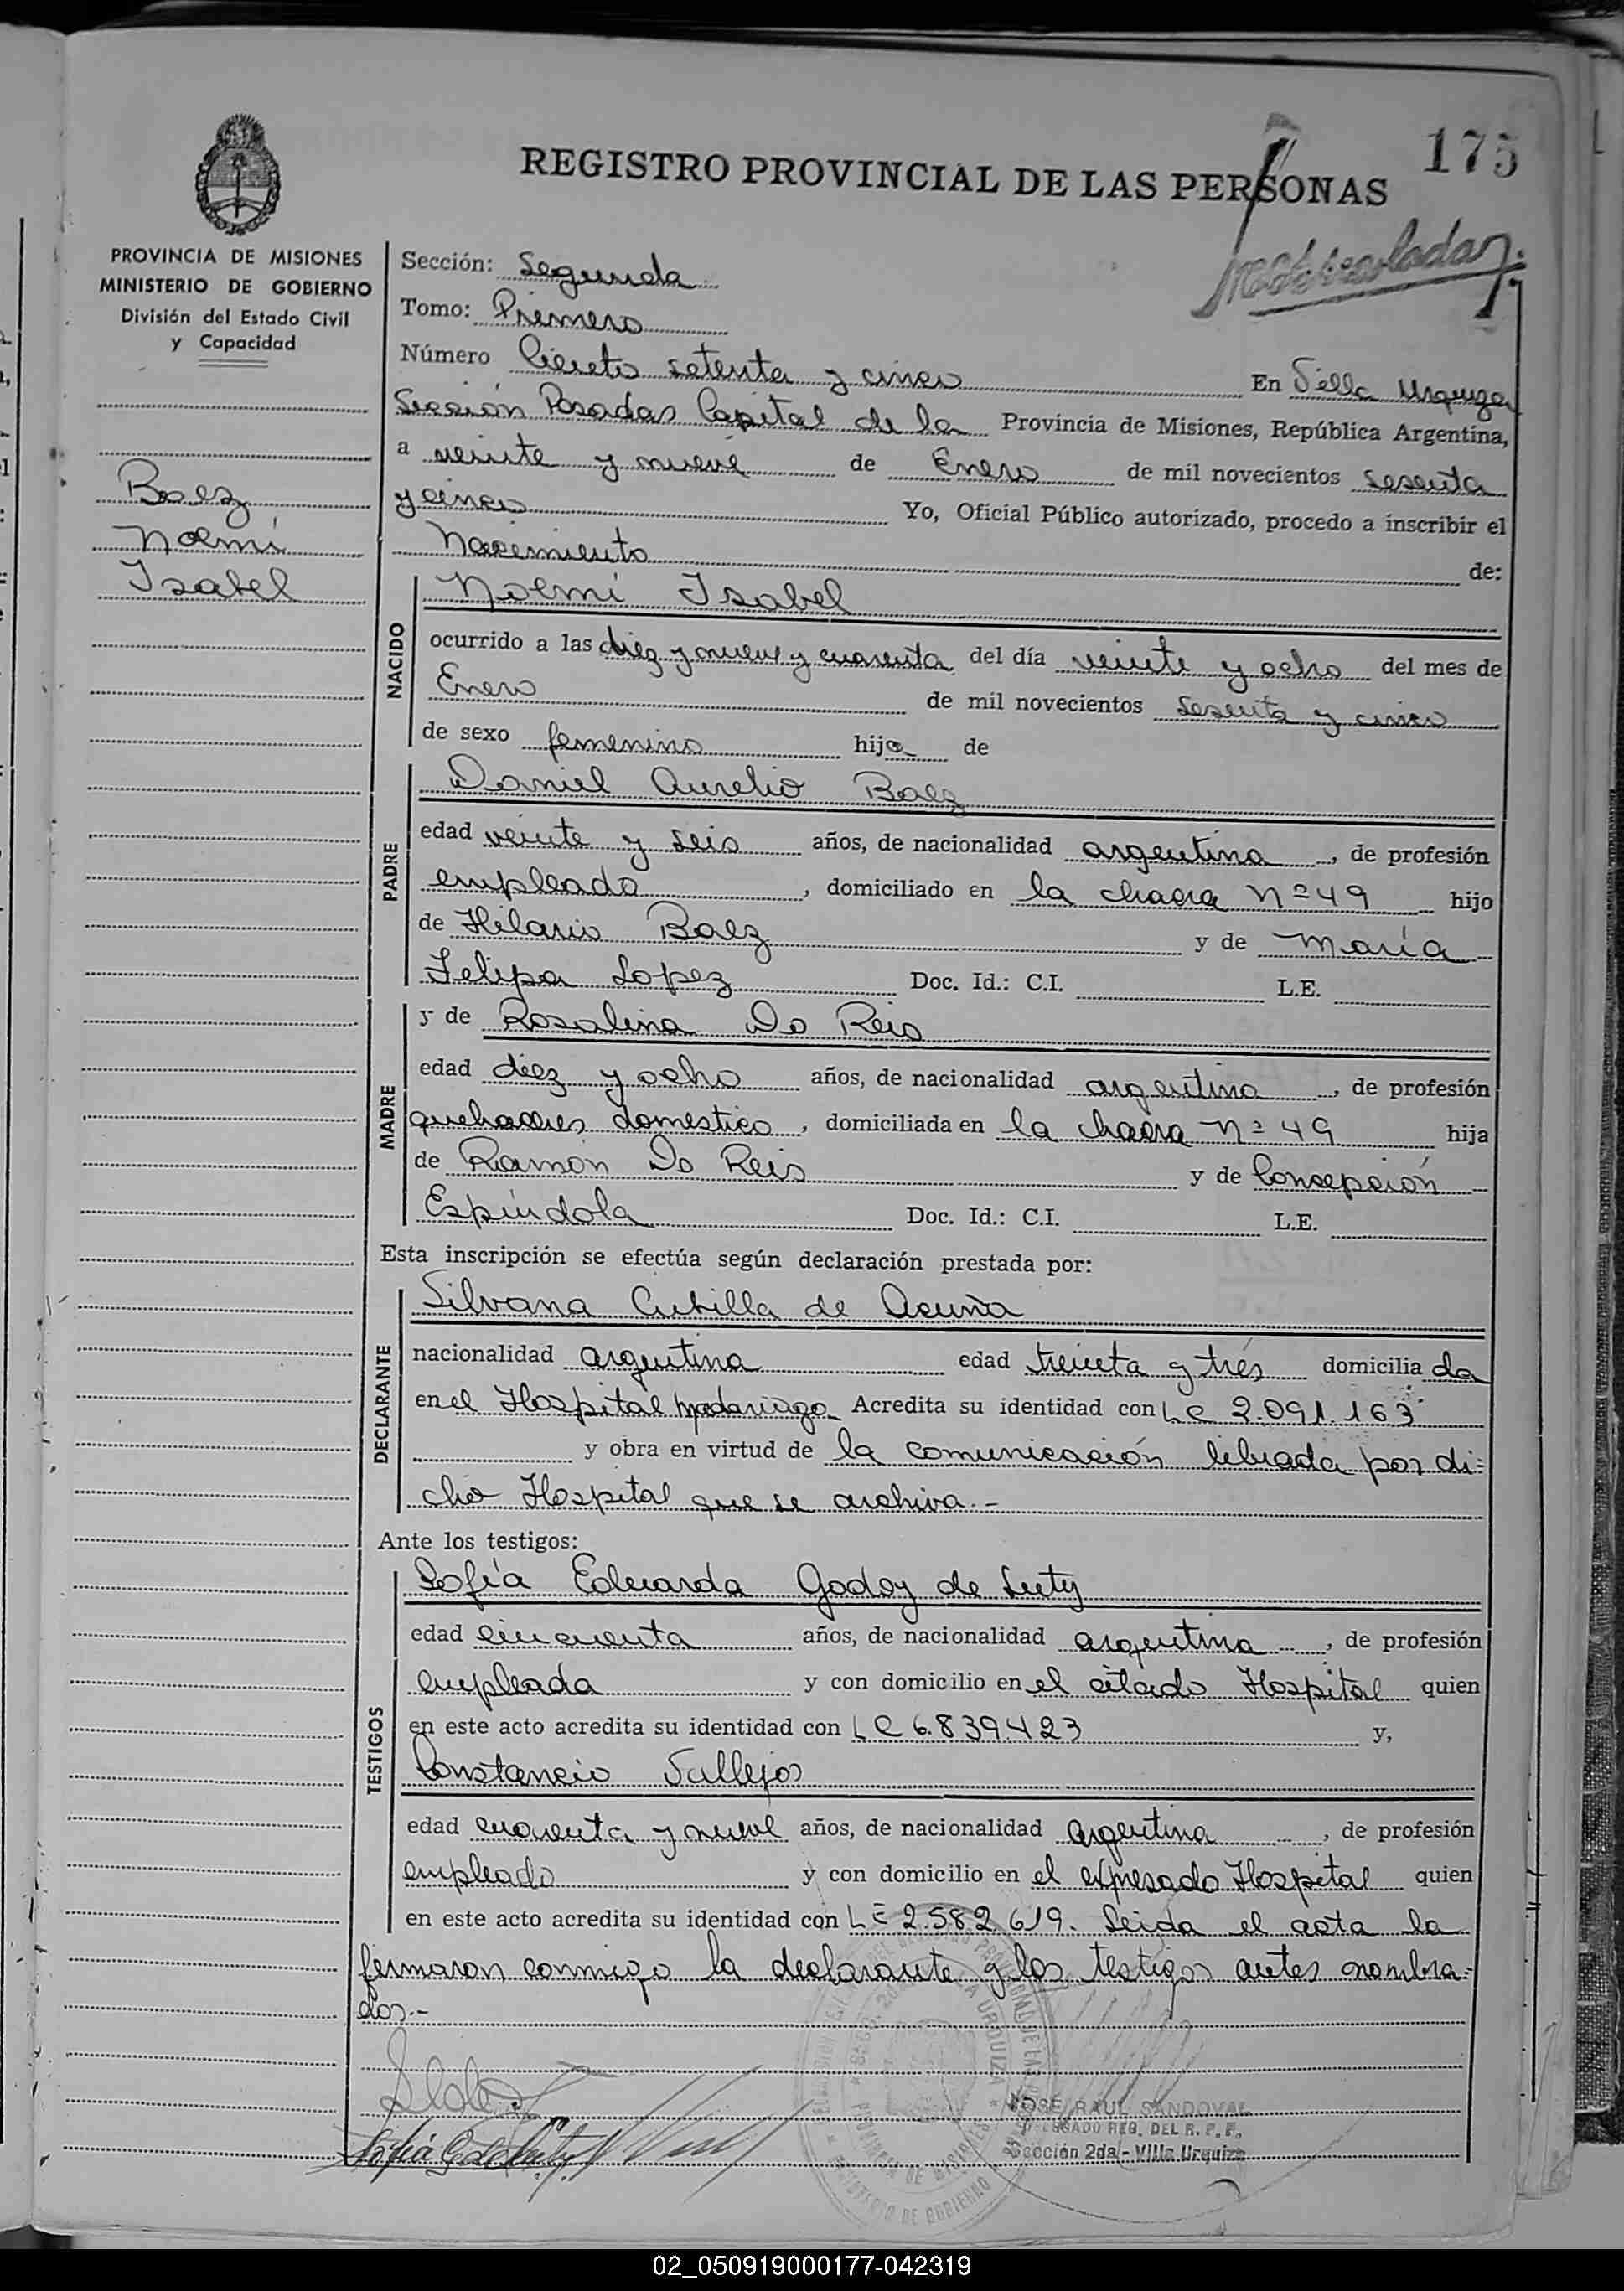 175
REGISTRO PROVINCIAL DE LAS PERSONAS
PROVINCIA DE MISIONES
MINISTERIO DE GOBIERNO
División del Estado Civil
y Capacidad
Baez
Noemí
Isabel
Sección: Segunda
Tomo: Primero
Número Ciento setenta y cinco En Villa Urquiza
Sección Posadas Capital de la Provincia de Misiones, República Argentina,
a veinte y nueve de Enero de mil novecientos sesenta
y cinco Yo, Oficial Público autorizado, procedo a inscribir el
Nacimiento de:
NACIDO
Noemí Isabel
ocurrido a las diez y nueve y cuarenta del día veinte y ocho del mes de
Enero de mil novecientos sesenta y cinco
de sexo femenino hija de
PADRE
Daniel Aurelio Baez
edad veinte y seis años, de nacionalidad argentina, de profesión
empleado, domiciliado en la chacra nº 49 hijo
de Hilario Baez y de María
Felipa Lopez Doc. Id.: C.I. L.E.
MADRE
y de Rosalina Do Reis
edad diez y ocho años, de nacionalidad argentina, de profesión
quehaceres domestico, domiciliada en la chacra nº 49 hija
de Ramón Do Reis y de Concepción
Espíndola Doc. Id.: C.I. L.E.
Esta inscripción se efectúa según declaración prestada por:
DECLARANTE
Silvana Cubilla de Acuña
nacionalidad argentina edad treinta y tres domiciliada
en el Hospital Madariaga Acredita su identidad con LC 2.091.163
y obra en virtud de la comunicación librada por di=
cho Hospital que se archiva.-
Ante los testigos:
TESTIGOS
Sofía Eduarda Godoy de
edad cincuenta años, de nacionalidad argentina, de profesión
empleada y con domicilio en el citado Hospital quien
en este acto acredita su identidad con LC 6.839.423 y,
Constancio Vallejos
edad cuarenta y nueve años, de nacionalidad argentina, de profesión
empleado y con domicilio en el expresado Hospital quien
en este acto acredita su identidad con LE 2.582.619. Leida el acta la
firmaron conmigo la declarante y los testigos antes nombra=
dos.-
JOSE RAUL SANDOVAL
DEL R. P. P.
Sección 2da - Villa Urquiza
02_050919000177-042319